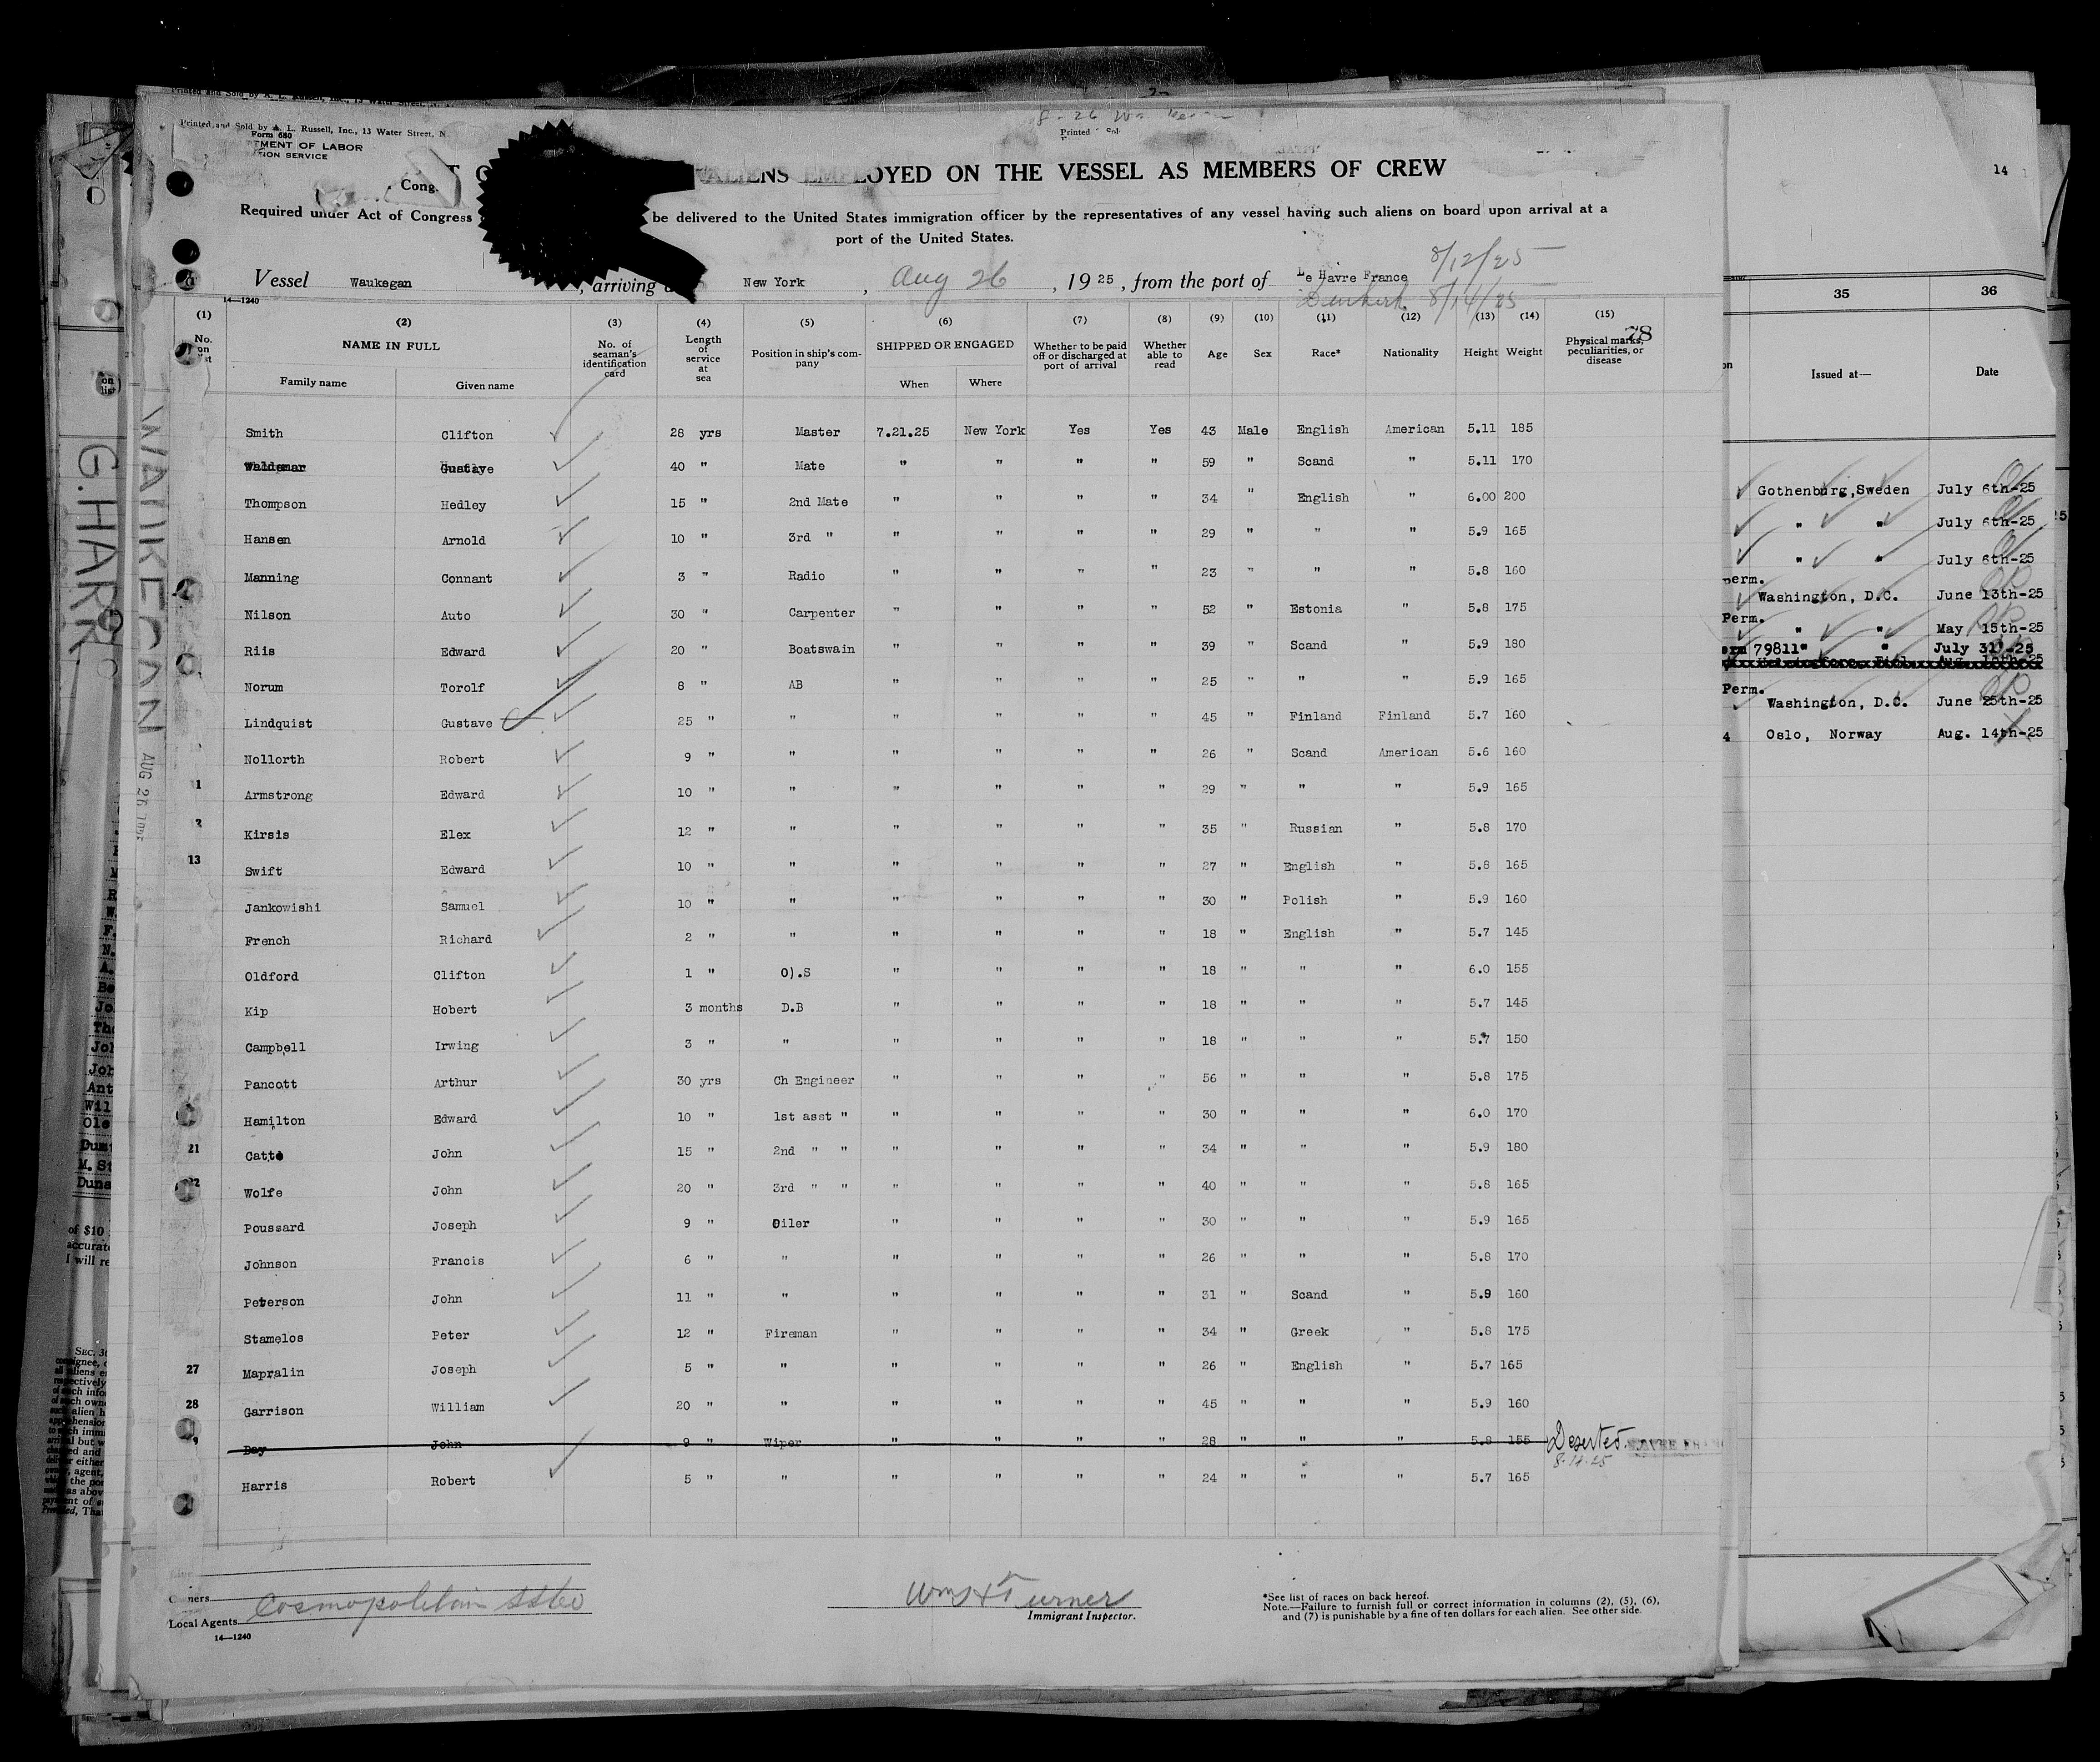 Printed and Sold by A. L. Russell, Inc., 13 Water Street, N.
Form 680
TMENT OF LABOR
TION SERVICE
Cong.
ALIENS EMPLOYED ON THE VESSEL AS MEMBERS OF CREW
Required under Act of Congress be delivered to the United States immigration officer by the representatives of any vessel having such aliens on board upon arrival at a
port of the United States.
8/12/25
Vessel Waukegan, arriving New York, Aug 26, 1925, from the port of Le Havre France
Dunkerk 8/14/25
14—1240
78
(1) (2) (3) (4) (5) (6) (7) (8) (9) (10) (11) (12) (13) (14) (15)
No. on list NAME IN FULL Family name Given name No. of seaman's identification card Length of service at sea Position in ship's company SHIPPED OR ENGAGED When Where Whether to be paid off or discharged at port of arrival Whether able to read Age Sex Race* Nationality Height Weight Physical marks, peculiarities, or disease
Smith Clifton 28 yrs Master 7.21.25 New York Yes Yes 43 Male English American 5.11 185
Waldemar Gustave 40 " Mate " " " " 59 " Scand " 5.11 170
Thompson Hedley 15 " 2nd Mate " " " " 34 " English " 6.00 200
Hansen Arnold 10 " 3rd " " " " " 29 " " " 5.9 165
Manning Connant 3 " Radio " " " " 23 " " " 5.8 160
Nilson Auto 30 " Carpenter " " " " 52 " Estonia " 5.8 175
Riis Edward 20 " Boatswain " " " " 39 " Scand " 5.9 180
Norum Torolf 8 " AB " " " " 25 " " " 5.9 165
Lindquist Gustave 25 " " " " " " 45 " Finland Finland 5.7 160
Nollorth Robert 9 " " " " " " 26 " Scand American 5.6 160
1 Armstrong Edward 10 " " " " " " 29 " " " 5.9 165
2 Kirsis Elex 12 " " " " " " 35 " Russian " 5.8 170
13 Swift Edward 10 " " " " " " 27 " English " 5.8 165
Jankowishi Samuel 10 " " " " " " 30 " Polish " 5.9 160
French Richard 2 " " " " " " 18 " English " 5.7 145
Oldford Clifton 1 " O).S " " " " 18 " " " 6.0 155
Kip Hobert 3 months D.B " " " " 18 " " " 5.7 145
Campbell Irwing 3 " " " " " " 18 " " " 5.7 150
Pancott Arthur 30 yrs Ch Engineer " " " " 56 " " " 5.8 175
Hamilton Edward 10 " 1st asst " " " " " 30 " " " 6.0 170
21 Catto John 15 " 2nd " " " " " " 34 " " " 5.9 180
22 Wolfe John 20 " 3rd " " " " " " 40 " " " 5.8 165
Poussard Joseph 9 " Oiler " " " " 30 " " " 5.9 165
Johnson Francis 6 " " " " " " 26 " " " 5.8 170
Peterson John 11 " " " " " " 31 " Scand " 5.9 160
Stamelos Peter 12 " Fireman " " " " 34 " Greek " 5.8 175
27 Mapralin Joseph 5 " " " " " " 26 " English " 5.7 165
28 Garrison William 20 " " " " " " 45 " " " 5.9 160
9 Day John 9 " Wiper " " " " 28 " " " 5.8 155 Deserted HAVRE FRANC
8.14.25
Harris Robert 5 " " " " " " 24 " " " 5.7 165
Owners
Local Agents Cosmopolitan SS Co
14—1240
Wm H Turner
Immigrant Inspector.
*See list of races on back hereof.
Note.—Failure to furnish full or correct information in columns (2), (5), (6),
and (7) is punishable by a fine of ten dollars for each alien. See other side.
WAUKEGAN AUG 26
G. HARR
14
35 36
Issued at— Date
Gothenburg, Sweden July 6th-25
" " July 6th-25
" " July 6th-25
perm.
Washington, D.C. June 13th-25
Perm.
" " May 15th-25
79811" " July 31-25
Perm.
Washington, D.C. June 25th-25
4 Oslo, Norway Aug. 14th-25